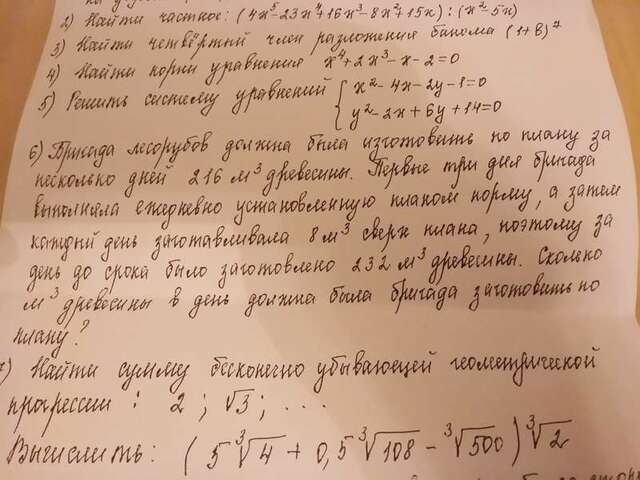 2) Найти частное: (4x⁵-23x⁴+16x³-8x²+15x) : (x²-5x)
3) Найти четвёртый член разложения бинома (1+в)⁷
4) Найти корни уравнения x⁴+2x³-x-2=0
5) Решить систему уравнений { x²-4x-2y-1=0
y²-2x+6y+14=0
6) Бригада лесорубов должна была изготовить по плану за
несколько дней 216 м³ древесины. Первые три дня бригада
выполняла ежедневно установленную планом норму, а затем
каждый день заготавливала 8 м³ сверх плана, поэтому за
день до срока было заготовлено 232 м³ древесины. Сколько
м³ древесины в день должна была бригада заготовить по
плану?
) Найти сумму бесконечно убывающей геометрической
прогрессии : 2 ; √3 ; ...
Вычислить: (5∛4 + 0,5∛108 - ∛500)∛2